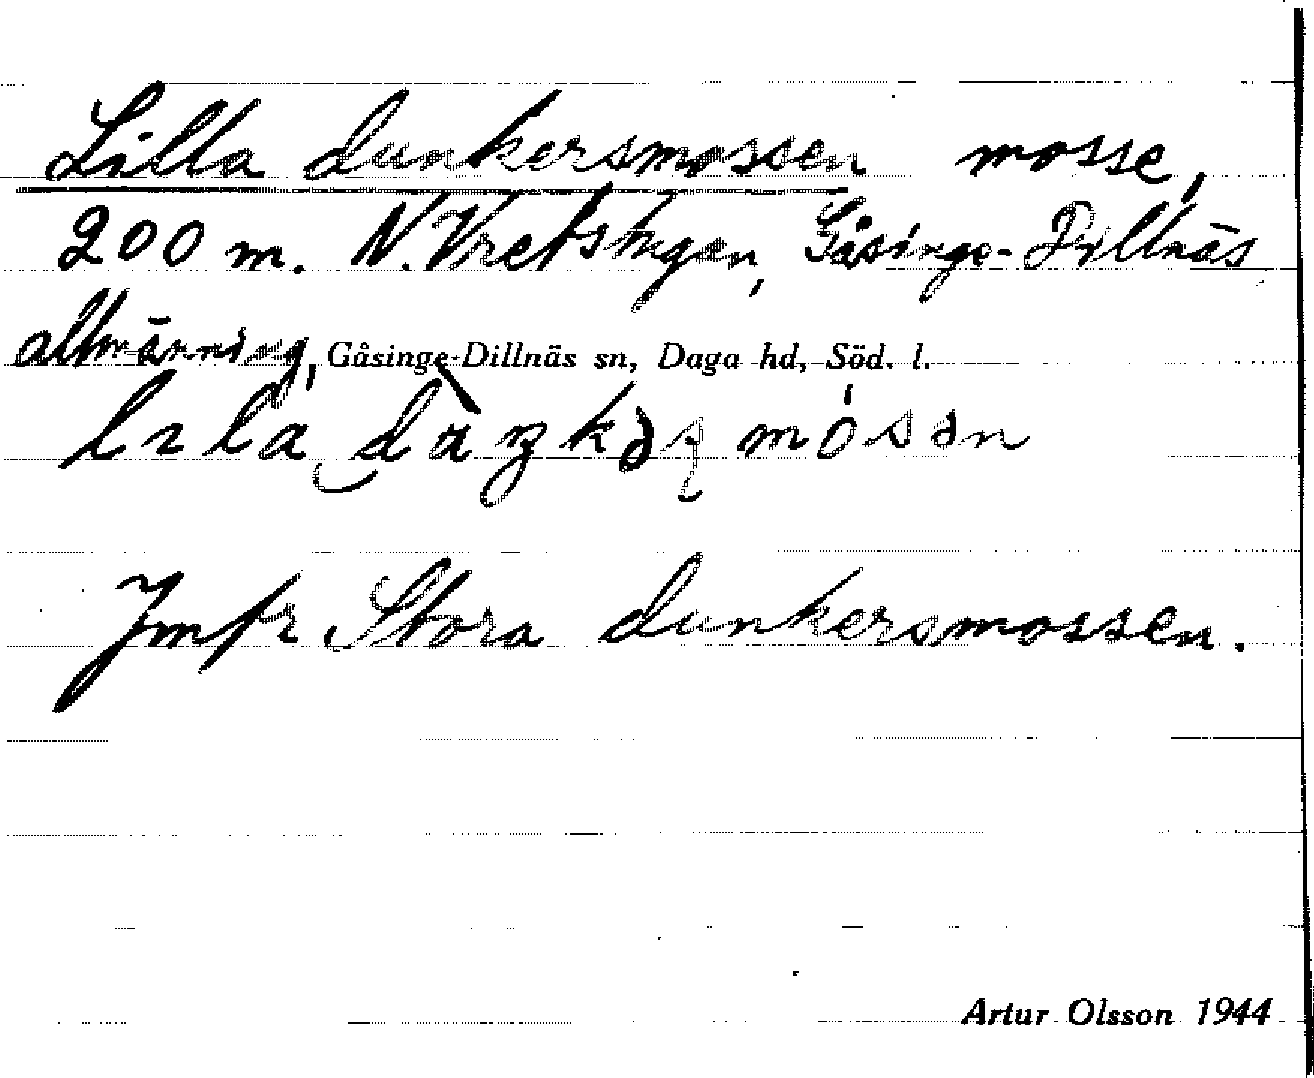 Lilla dunkersmossen mosse,
200 m. N. Vretstugan, Gåsinge-Dillnäs
allmänning, Gåsinge-Dillnäs sn, Daga hd, Söd. l.
Jmfr Stora dunkersmossen.
Artur Olsson 1944